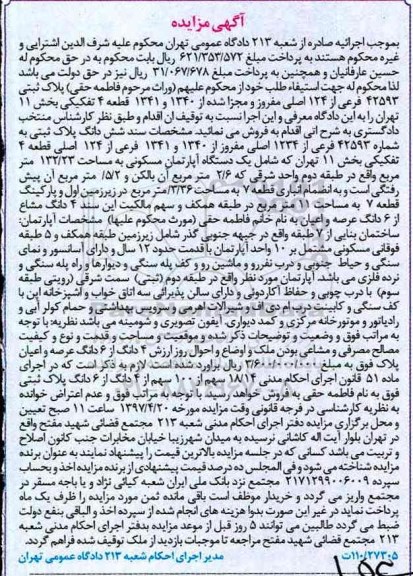 آگهی مزایده
بموجب اجرائیه صادره از شعبه ۲۱۳ دادگاه عمومی تهران محکوم علیه شرف الدین اشترایی و
غیره محکوم هستند به پرداخت مبلغ ۶۲۱/۳۵۳/۵۷۲ ریال بابت محکوم به در حق محکوم له
حسین عارفانیان و همچنین به پرداخت مبلغ ۳۱/۰۶۷/۶۷۸ ریال نیز در حق دولت می باشد
لذا محکوم له جهت استیفاء طلب خود از محکوم علیهم (وراث مرحوم فاطمه حقی) پلاک ثبتی
۴۲۵۹۳ فرعی از ۱۲۴ اصلی مفروز و مجزا شده از ۱۳۴۰ و ۱۳۴۱ قطعه ۴ تفکیکی بخش ۱۱
تهران را به این دادگاه معرفی و این اجرا نسبت به توقیف آن اقدام و طبق نظر کارشناس منتخب
دادگستری به شرح آتی اقدام به فروش می نماید. مشخصات سند شش دانگ پلاک ثبتی به
شماره ۴۲۵۹۳ فرعی از ۱۲۳۴ اصلی مفروز از ۱۳۴۰ و ۱۳۴۱ فرعی از ۱۲۴ اصلی قطعه ۴
تفکیکی بخش ۱۱ تهران که شامل یک دستگاه آپارتمان مسکونی به مساحت ۱۳۲/۲۳ متر
مربع واقع در طبقه دوم واحد شرقی که ۲/۶ متر مربع آن بالکن و ۱۵/۲ متر مربع آن پیش
رفتگی است و به انضمام انباری قطعه ۷ به مساحت ۳/۳۶ متر مربع در زیرزمین اول و پارکینگ
قطعه ۷ به مساحت ۱۰ متر مربع در طبقه همکف و سهم مالکیت این سند ۴ دانگ مشاع
از ۶ دانگ عرصه و اعیان به نام خانم فاطمه حقی (مورث محکوم علیها) مشخصات آپارتمان:
ساختمان بنایی از ۷ طبقه واقع در جبهه جنوبی گذر شامل زیرزمین طبقه همکف و ۵ طبقه
فوقانی مسکونی مشتمل بر ۱۰ واحد آپارتمان با قدمت حدود ۱۲ سال و دارای آسانسور و نمای
سنگی و حیاط جنوبی و درب نفررو و ماشین رو و کف پله سنگی و دیوارها و راه پله سنگی و
نرده فلزی می باشد. آپارتمان مورد نظر واقع در طبقه دوم (ثبتی) سمت شرقی (رویتی طبقه
سوم) با درب چوبی و حفاظ آکاردئونی و دارای سالن پذیرائی سه اتاق خواب و آشپزخانه اپن با
کف سنگی و کابینت درب ام دی اف و شیرآلات اهرمی و سرویس بهداشتی و حمام کولر آبی و
رادیاتور و موتورخانه مرکزی و کمد دیواری، آیفون تصویری و شومینه می باشد نظریه: با توجه
به مراتب فوق و وضعیت و توضیحات ذکر شده و موقعیت و مساحت و قدمت و نوع و کیفیت
مصالح مصرفی و مشاعی بودن ملک و اوضاع و احوال روز ارزش ۴ دانگ از ۶ دانگ عرصه و اعیان
پلاک فوق به مبلغ ریال برآورد شده است. لازم به ذکر است که در اجرای
ماده ۵۱ قانون اجرای احکام مدنی ۱۷/۱۴ سهم از ۱۰۰ سهم از ۴ دانگ از ۶ دانگ پلاک ثبتی
فوق به نام فاطمه حقی به فروش خواهد رسید. با توجه به مراتب فوق و عدم اعتراض خوانده
به نظریه کارشناسی در فرجه قانونی وقت مزایده مورخه ۱۳۹۷/۴/۲۰ ساعت ۱۱ صبح تعیین
و محل برگزاری مزایده دفتر اجرای احکام مدنی شعبه ۲۱۳ مجتمع قضائی شهید مفتح واقع
در تهران بلوار آیت اله کاشانی نرسیده به میدان شهرزیبا خیابان مخابرات جنب کانون اصلاح
و تربیت می باشد کسانی که در جلسه مزایده بالاترین قیمت را پیشنهاد نمایند به عنوان برنده
مزایده شناخته می شود و فی المجلس ده درصد قیمت پیشنهادی از برنده مزایده اخذ و بحساب
سپرده ۲۱۷۱۲۹۹۰۰۶۰۰۹ مجتمع نزد بانک ملی ایران شعبه کیائی نژاد و یا باجه مستقر در
مجتمع واریز می گردد و خریدار موظف است باقی مانده ثمن مورد مزایده را ظرف یک ماه
پرداخت نماید در غیر این صورت بدوا هزینه های انجام شده از سپرده اخذ و الباقی بنفع دولت
ضبط می گردد طالبین می توانند ۵ روز قبل از موعد مزایده بدفتر اجرای احکام مدنی شعبه
۲۱۳ مجتمع قضائی شهید مفتح مراجعه تا موجبات بازدید از ملک توقیف شده فراهم گردد.
۱۱۰/۲۷۳۰۵ت مدیر اجرای احکام شعبه ۲۱۳ دادگاه عمومی تهران